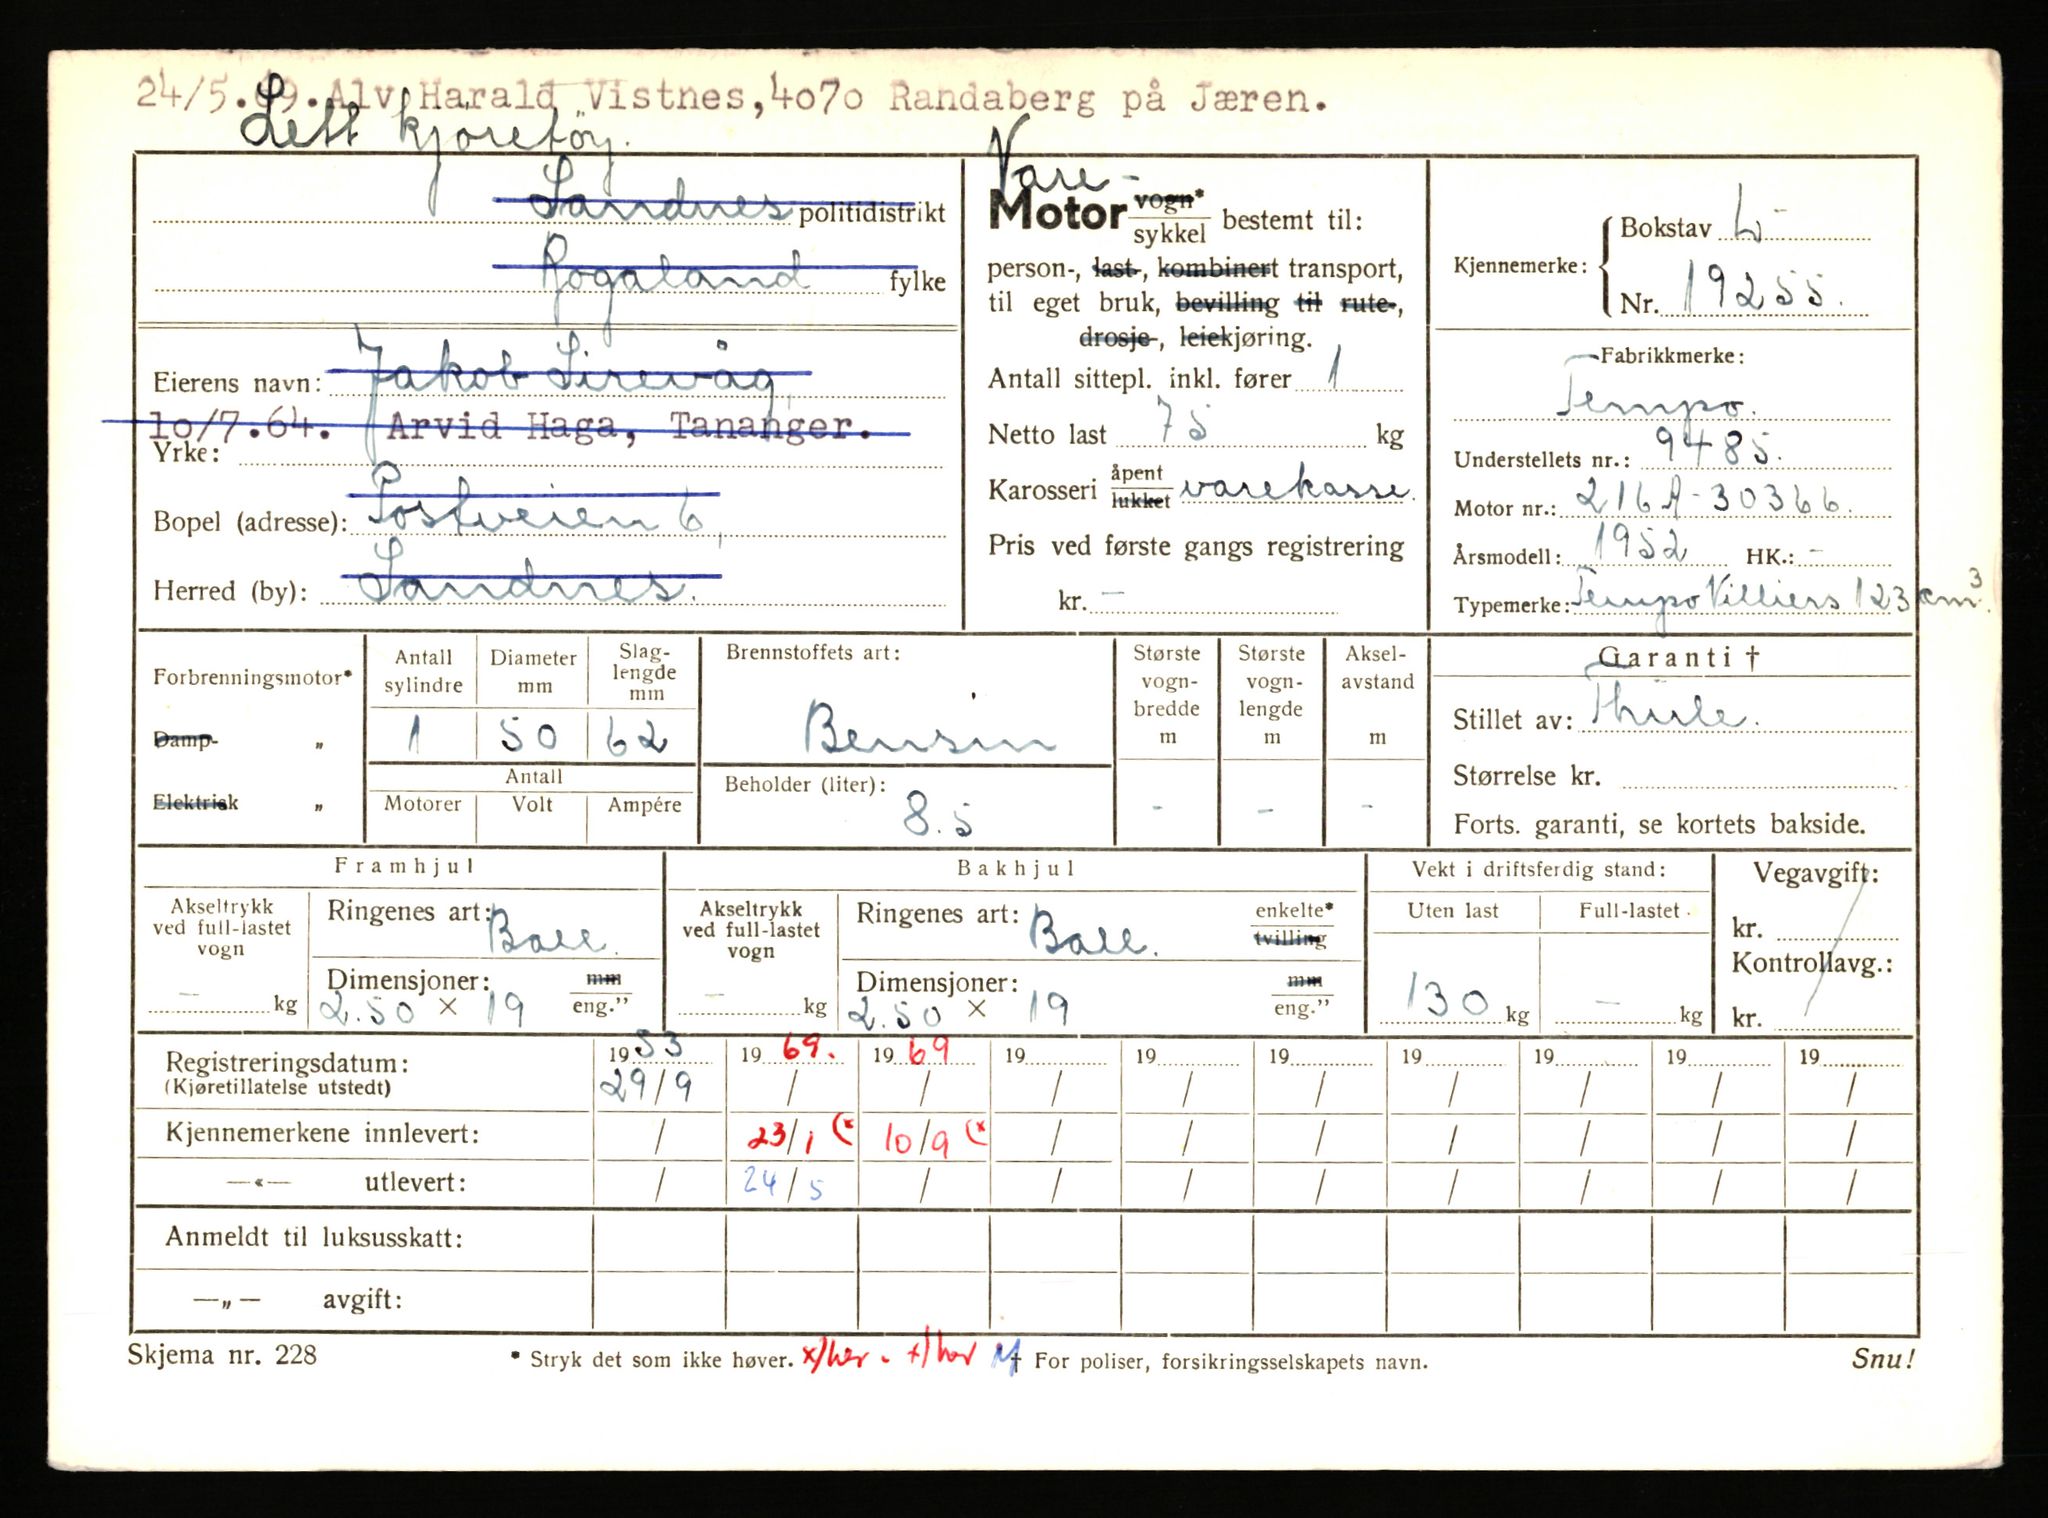 24/5.69. Alv Harald Vistnes, 4070 Randaberg på Jæren.
Lett kjøretøy.
Sandnes politidistrikt
Rogaland fylke
Eierens navn: Jakob Sirevåg
10/7.64. Arvid Haga, Tananger.
Yrke:
Bopel (adresse): Postveien 6,
Herred (by): Sandnes.
Vare-
Motor vogn* sykkel bestemt til:
person-, last-, kombinert transport,
til eget bruk, bevilling til rute-,
drosje-, leiekjøring.
Antall sittepl. inkl. fører 1
Netto last 75 kg
Karosseri åpent lukket varekasse.
Pris ved første gangs registrering
kr. -
Kjennemerke: Bokstav L-
Nr. 19255.
Fabrikkmerke:
Tempo.
Understellets nr.: 9485.
Motor nr.: 216A-30366.
Årsmodell: 1952 HK.: -
Typemerke: Tempo Villiers 123 cm³.
Forbrenningsmotor*
Damp- „
Elektrisk „
Antall sylindre
Diameter mm
Slag-lengde mm
1 50 62
Antall
Motorer Volt Ampére
Brennstoffets art:
Bensin
Beholder (liter):
8.5
Største vogn-bredde m
-
Største vogn-lengde m
-
Aksel-avstand m
-
Garanti †
Stillet av: Thule.
Størrelse kr.
Forts. garanti, se kortets bakside.
Framhjul
Akseltrykk ved full-lastet vogn
- kg
Ringenes art: Ball.
Dimensjoner: mm
2.50 × 19 eng."
Bakhjul
Akseltrykk ved full-lastet vogn
- kg
Ringenes art: Ball. enkelte* tvilling
Dimensjoner: mm
2.50 × 19 eng."
Vekt i driftsferdig stand:
Uten last Full-lastet
130 kg - kg
Vegavgift:
kr.
Kontrollavg.:
kr.
Registreringsdatum: 1953 1969. 1969 19 19 19 19 19 19 19
(Kjøretillatelse utstedt) 29/9 / / / / / / / / /
Kjennemerkene innlevert: / 23/1 (* 10/9 (* / / / / / / /
—«— utlevert: / 24/5 / / / / / / / /
Anmeldt til luksusskatt:
—„— avgift:
Skjema nr. 228
* Stryk det som ikke høver. x/her. +/her
† For poliser, forsikringsselskapets navn.
Snu!